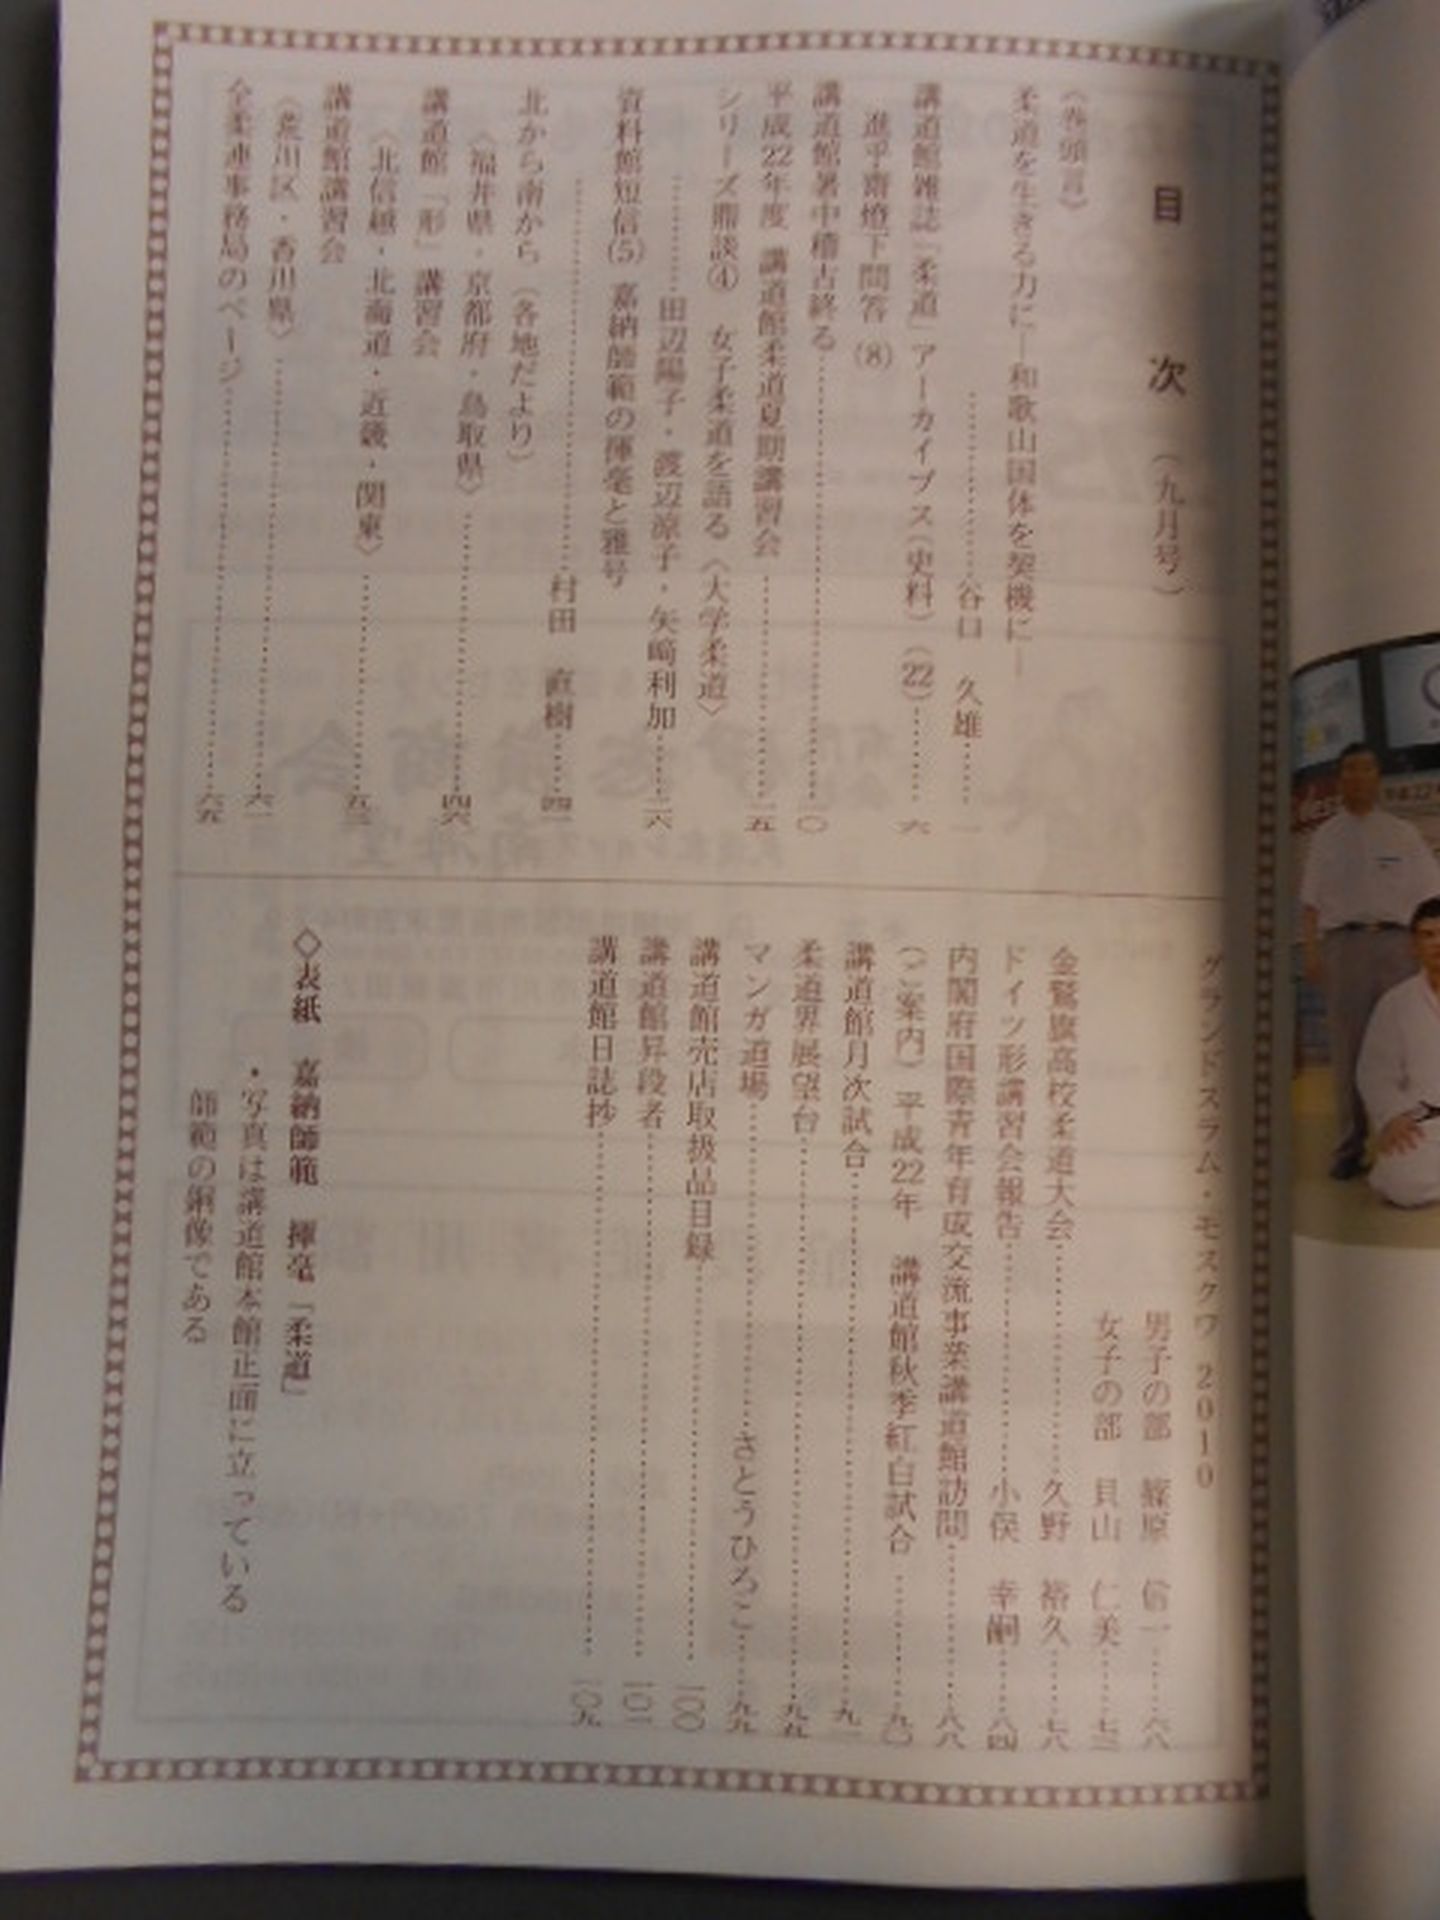 目次（九月号）
《巻頭言》
柔道を生きる力に―和歌山国体を契機に―
谷口 久雄 一
講道館雑誌「柔道」アーカイブス（史料）（22） 六
進乎齋燈下問答（8）
講道館暑中稽古終る 一〇
平成22年度 講道館柔道夏期講習会 一五
シリーズ鼎談④ 女子柔道を語る〈大学柔道〉
田辺陽子・渡辺涼子・矢﨑利加 二六
資料館短信(5) 嘉納師範の揮毫と雅号
村田 直樹
北から南から（各地だより）
〈福井県・京都府・鳥取県〉 四六
講道館「形」講習会
〈北信越・北海道・近畿・関東〉 五三
講道館講習会
〈荒川区・香川県〉
全柔連事務局のページ 六五
グランドスラム・モスクワ 2010
男子の部 篠原 信一 六八
女子の部 貝山 仁美 七三
金鷲旗高校柔道大会 久野 裕久 七八
ドイツ形講習会報告 小俣 幸嗣 八四
内閣府国際青年育成交流事業講道館訪問 八八
（ご案内）平成22年 講道館秋季紅白試合 九〇
講道館月次試合 九一
柔道界展望台 九五
マンガ道場 さとうひろこ 九九
講道館売店取扱品目録 一〇〇
講道館昇段者
講道館日誌抄 一〇九
◇表紙 嘉納師範 揮毫「柔道」
・写真は講道館本館正面に立っている
師範の銅像である